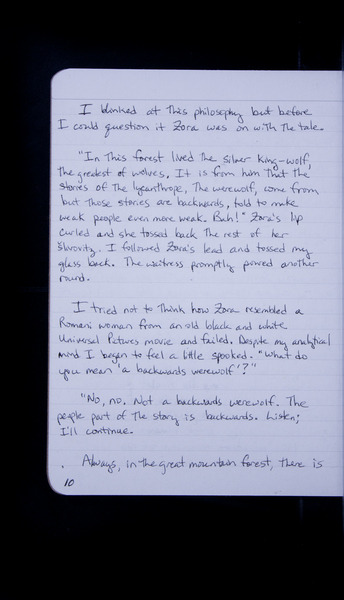 I blinked at this philosophy but before
I could question it Zora was on with the tale.
"In this forest lived the silver king-wolf,
the greatest of wolves. It is from him that the
stories of the lycanthrope, the werewolf, come from
but those stories are backwards, told to make
weak people even more weak. Bah!" Zora's lip
curled and she tossed back the rest of her
slivovitz. I followed Zora's lead and tossed my
glass back. The waitress promptly poured another
round.
I tried not to think how Zora resembled a
Romani woman from an old black and white
Universal Pictures movie and failed. Despite my analytical
mind I began to feel a little spooked. "What do
you mean 'a backwards werewolf'?"
"No, no. Not a backwards werewolf. The
people part of the story is backwards. Listen;
I'll continue.
Always, in the great mountain forest, there is
10